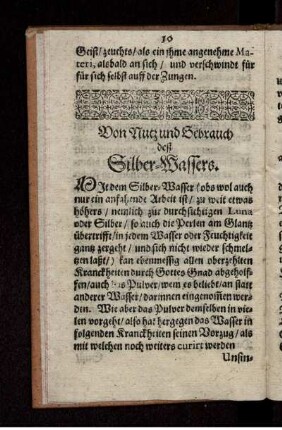 10
Geist / zeuchts / als ein ihme angenehme Ma-
teri, alsbald an sich / und verschwindt für
für sich selbst auff der Zungen.
Von Nutz und Gebrauch
deß
Silber-Wassers.
MIt dem Silber-Wasser (obs wol auch
nur ein anfahende Arbeit ist / zu weit etwas
höhers / nemlich zur durchsichtigen Luna
oder Silber / so auch die Perlen am Glantz
übertrifft / in jedem Wasser oder Feuchtigkeit
gantz zergeht / und sich nicht wieder schmel-
tzen laßt /) kan ebenmessig allen oberzehlten
Kranckheiten durch Gottes Gnad abgeholf-
fen / auch das Pulver, wem es beliebt / an statt
anderer Wasser / darinnen eingenommen wer-
den. Wie aber das Pulver demselben in vie-
len vorgeht / also hat hergegen das Wasser in
folgenden Kranckheiten seinen Vorzug / als
mit welchen noch weiters curirt werden
Unsin-